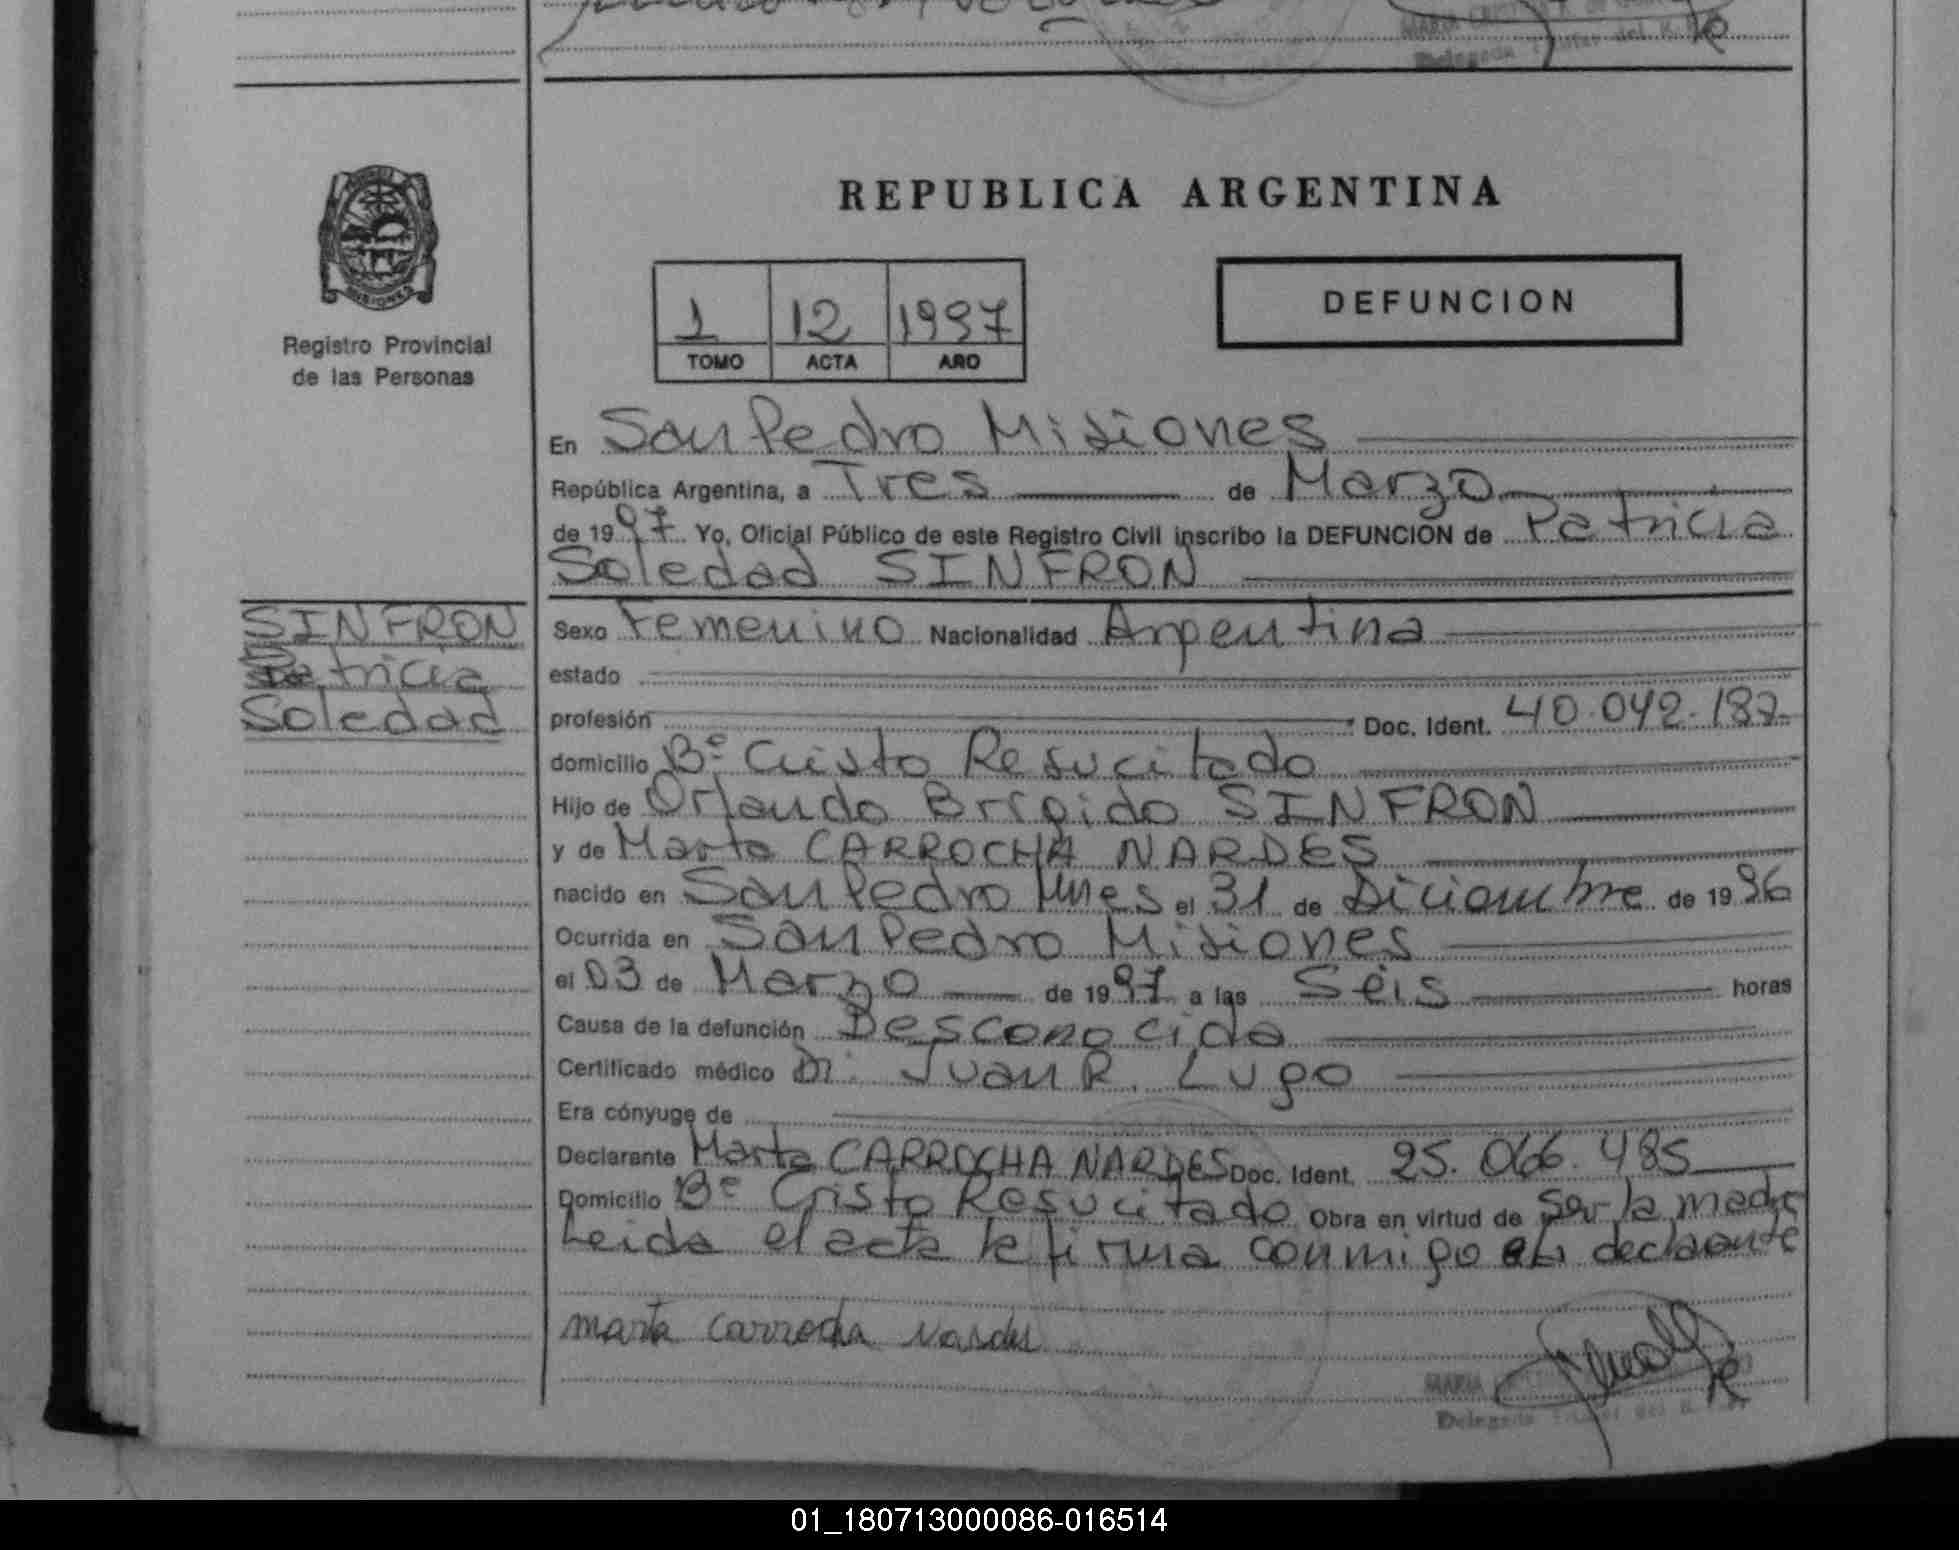 REPUBLICA ARGENTINA
1 12 1997
TOMO ACTA AÑO
DEFUNCION
Registro Provincial
de las Personas
MISIONES
En San Pedro Misiones
República Argentina, a Tres de Marzo
de 1997 Yo, Oficial Público de este Registro Civil inscribo la DEFUNCION de Patricia
Soledad SINFRON
SINFRON
Patricia
Soledad
Sexo Femenino Nacionalidad Argentina
estado
profesión Doc. Ident. 40.042.187
domicilio Bº Cristo Resucitado
Hijo de Orlando Brígido SINFRON
y de Marta CARROCHA NARDES
nacido en San Pedro Mnes el 31 de Diciembre de 1996
Ocurrida en San Pedro Misiones
el 03 de Marzo de 1997 a las Seis horas
Causa de la defunción Desconocida
Certificado médico Dr. Juan R. Lugo
Era cónyuge de
Declarante Marta CARROCHA NARDES Doc. Ident. 25.066.485
Domicilio Bº Cristo Resucitado Obra en virtud de Ser la madre
Leida el acta la firma conmigo la declarante
marta carrocha nardes
MARIA
Delegada Titular del R.
01_180713000086-016514